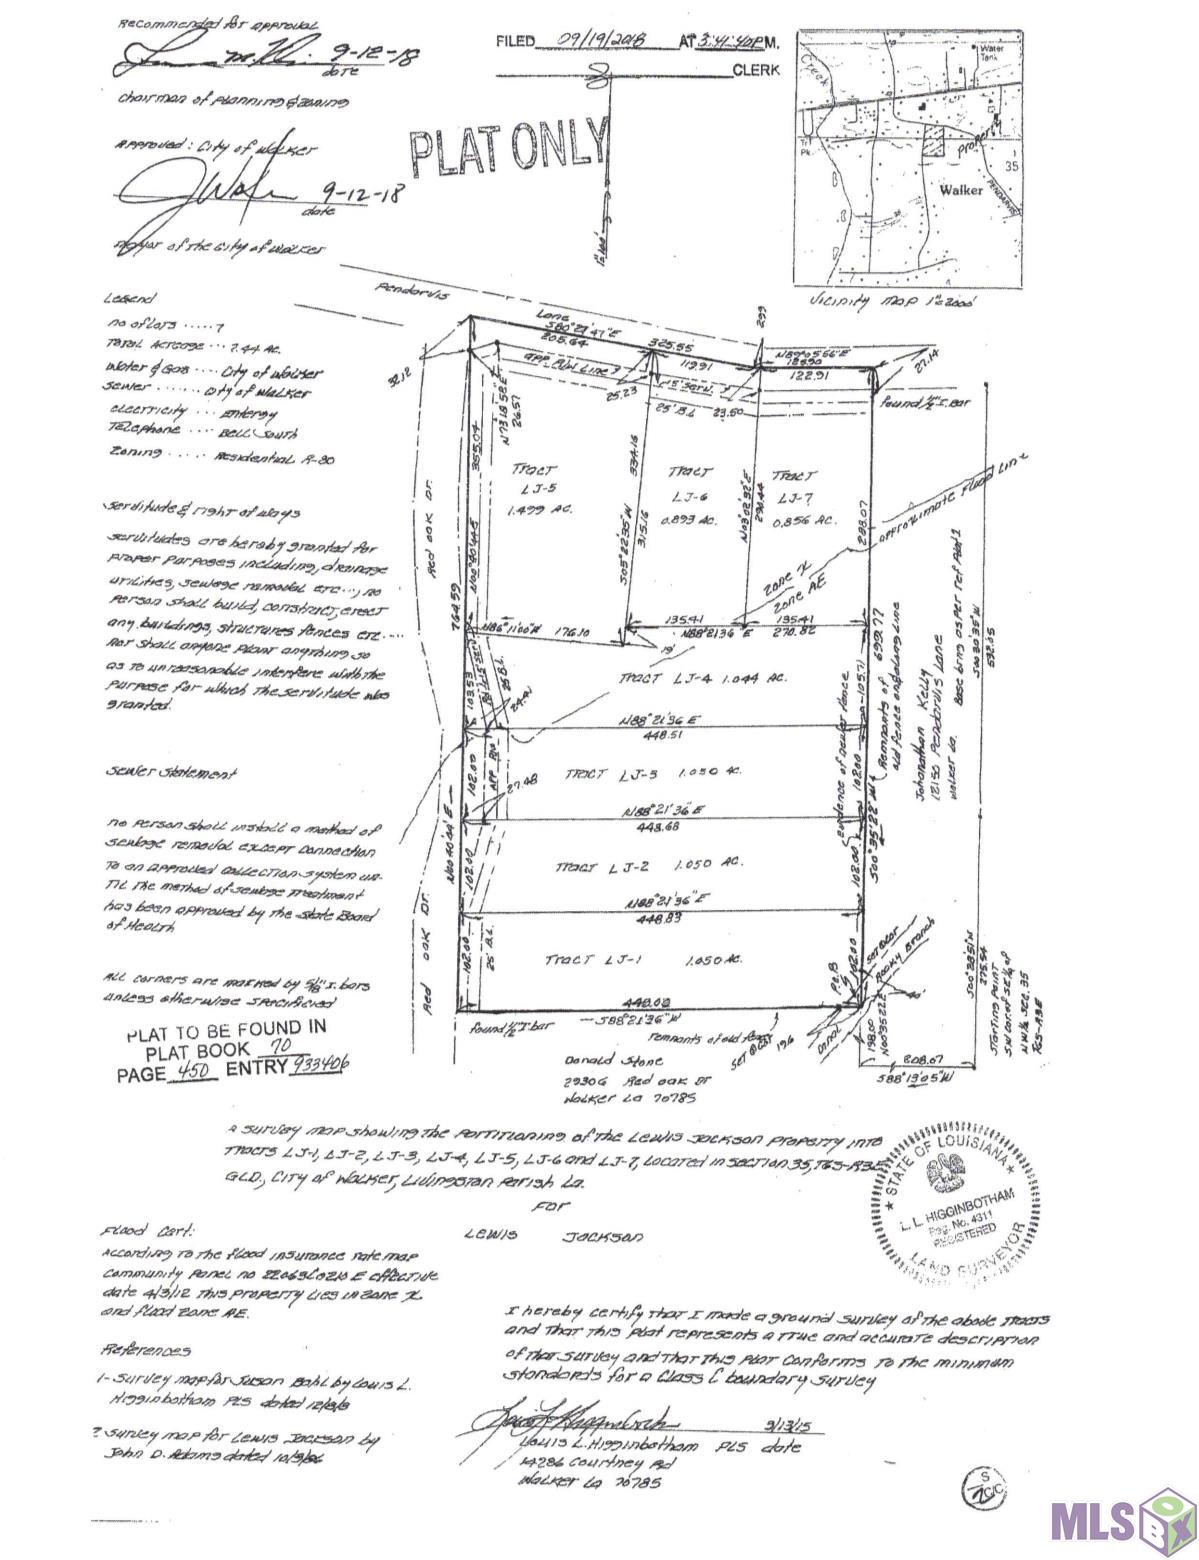 Recommended for approval
9-12-18
date
chairman of planning & zoning
Approved: City of Walker
9-12-18
date
Mayor of the City of Walker
FILED 09/19/2018 AT 3:41:40 P M.
CLERK
PLAT ONLY
1"=100'
Creek
Water
Tank
Tr
Pk
property
35
Walker
PENDARVIS
Vicinity map 1"=2000'
Legend
no of lots ..... 7
Total Acreage ... 7.44 AC.
Water & Gas ... City of Walker
sewer ..... City of Walker
electricity ... Entergy
Telephone ... Bell South
Zoning ..... Residential R-80
servitude & right of ways
servitudes are hereby granted for
proper purposes including, drainage
utilities, sewage removal etc..., no
person shall build, construct, erect
any buildings, structures fences etc....
nor shall anyone plant anything so
as to unreasonable interfere with the
purpose for which the servitude was
granted.
Sewer Statement
no person shall install a method of
sewage removal except connection
to an approved collection system un-
til the method of sewage treatment
has been approved by the State Board
of Health
All corners are marked by 5/8" I. bars
unless otherwise specificied
PLAT TO BE FOUND IN
PLAT BOOK 70
PAGE 450 ENTRY 933406
Pendarvis
Lane
S80°21'47"E
205.64
325.55
119.91
299
N89°05'56"E
122.91
27.14
32.12
25.23
15' Serv.
25' B.L.
23.50
found 1/2" I. Bar
N73°18'50"E
26.57
355.04
Red Oak Dr.
764.59
Tract
LJ-5
1.499 AC.
334.16
315.16
S05°22'35"W
Tract
LJ-6
0.893 AC.
N03°02'32"E
290.44
Tract
LJ-7
0.856 AC.
298.07
approximate flood line
Zone X
Zone AE
N86°11'00"W 176.10
19'
135.41
135.41
N88°21'36"E 270.82
Tract LJ-4 1.044 AC.
103.53
25' B.L.
24.91
105.71
N88°21'36"E
448.51
Tract LJ-3 1.050 AC.
102.00
27.48
102.00
N88°21'36"E
448.68
Tract LJ-2 1.050 AC.
102.00
102.00
N88°21'36"E
448.83
Tract LJ-1 1.050 AC.
102.00
25' B.L.
102.00
Red Oak Dr.
N00°40'44"E
S00°35'22"W
699.77
Remnants of
old fence on gludung line
evidence of newer fence
Johanathan Kelly
12150 Pendarvis Lane
Walker La.
Base brng as per Ref Plat 1
S00°30'35"W
532.05
S00°28'51"W
275.54
Starting Point
S.W. Cor of SE 1/4 of
NW 1/4 Sec. 35
T6S-R3E
449.02
S88°21'36"W
found 1/2" I. bar
remnants of old fence
P.O.B
Rocky Branch
40'
Canal
198.00
N00°35'22"E
208.67
S88°13'05"W
Donald Stone
29306 Red Oak Dr
Walker La 70785
A survey map showing the partitioning of the Lewis Jackson property into
Tracts LJ-1, LJ-2, LJ-3, LJ-4, LJ-5, LJ-6 and LJ-7, located in section 35, T6S-R3E
GLD., City of Walker, Livingstan Parish La.
For
Lewis Jackson
STATE OF LOUISIANA
L. L. HIGGINBOTHAM
Reg. No. 4311
REGISTERED
LAND SURVEYOR
Flood Cert:
According to the flood insurance rate map
community panel no 22063C0210 E effective
date 4/3/12 this property lies in zone X
and flood zone AE.
References
1- Survey map for Jason Bahl by Louis L.
Higginbotham PLS dated 12/8/8
2 Survey map for Lewis Jackson by
John D. Adams dated 10/9/86
I hereby certify that I made a ground survey of the above tracts
and that this plat represents a true and accurate description
of that survey and that this plat conforms to the minimum
standards for a Class C boundary survey
3/13/15
Louis L. Higginbotham PLS date
14286 Courtney Rd
Walker La 70785
MLS BOX